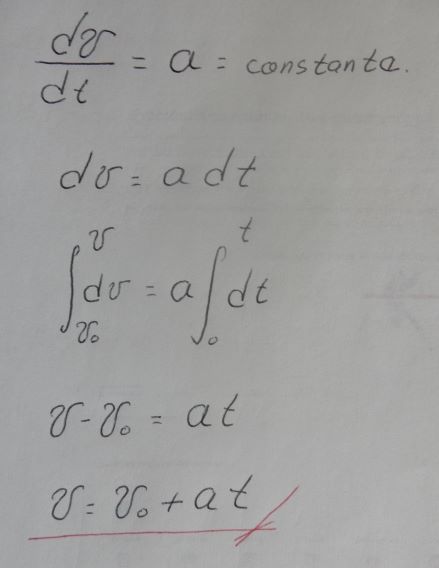 dv/dt = a = constanta.
dv = a dt
∫_{v₀}^{v} dv = a ∫_{0}^{t} dt
v - v₀ = at
v = v₀ + at